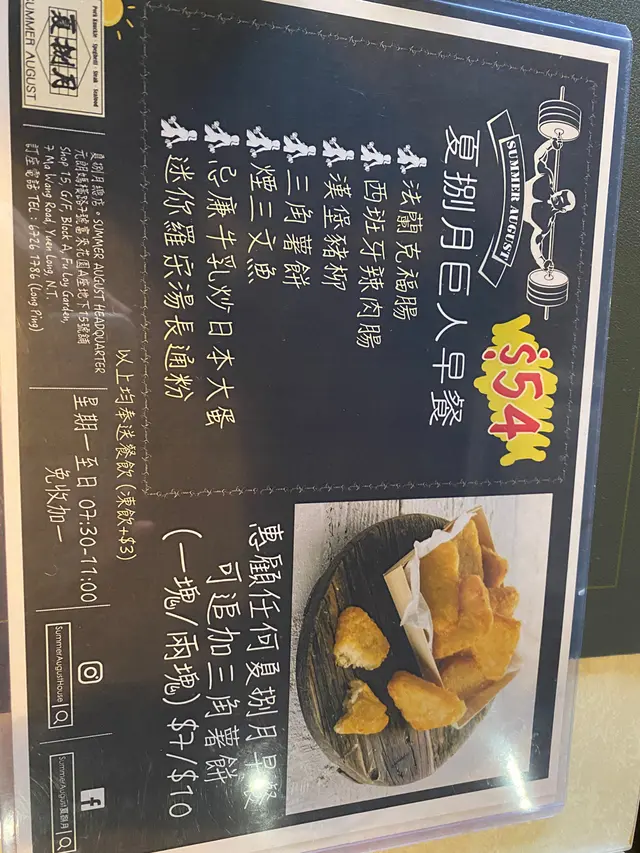 SUMMER AUGUST
夏捌月巨人早餐
$54
法蘭克福腸
西班牙辣肉腸
漢堡豬柳
三角薯餅
煙三文魚
忌廉牛乳炒日本大蛋
迷你羅宋湯長通粉
以上均奉送餐飲 (凍飲+$3)
惠顧任何夏捌月早餐
可追加三角薯餅
(一塊/兩塊) $7/$10
夏捌月
SUMMER AUGUST
夏捌月總店。SUMMER AUGUST HEADQUARTER
Shop 15, G/F, Block A, Fu Loy Garden,
7 Ma Wang Road, Yuen Long, N.T.
訂座電話 TEL: 6726 1786 (Long Ping)
星期一至日 07:30-11:00
免收加一
SummerAugustHouse
SummerAugust夏捌月